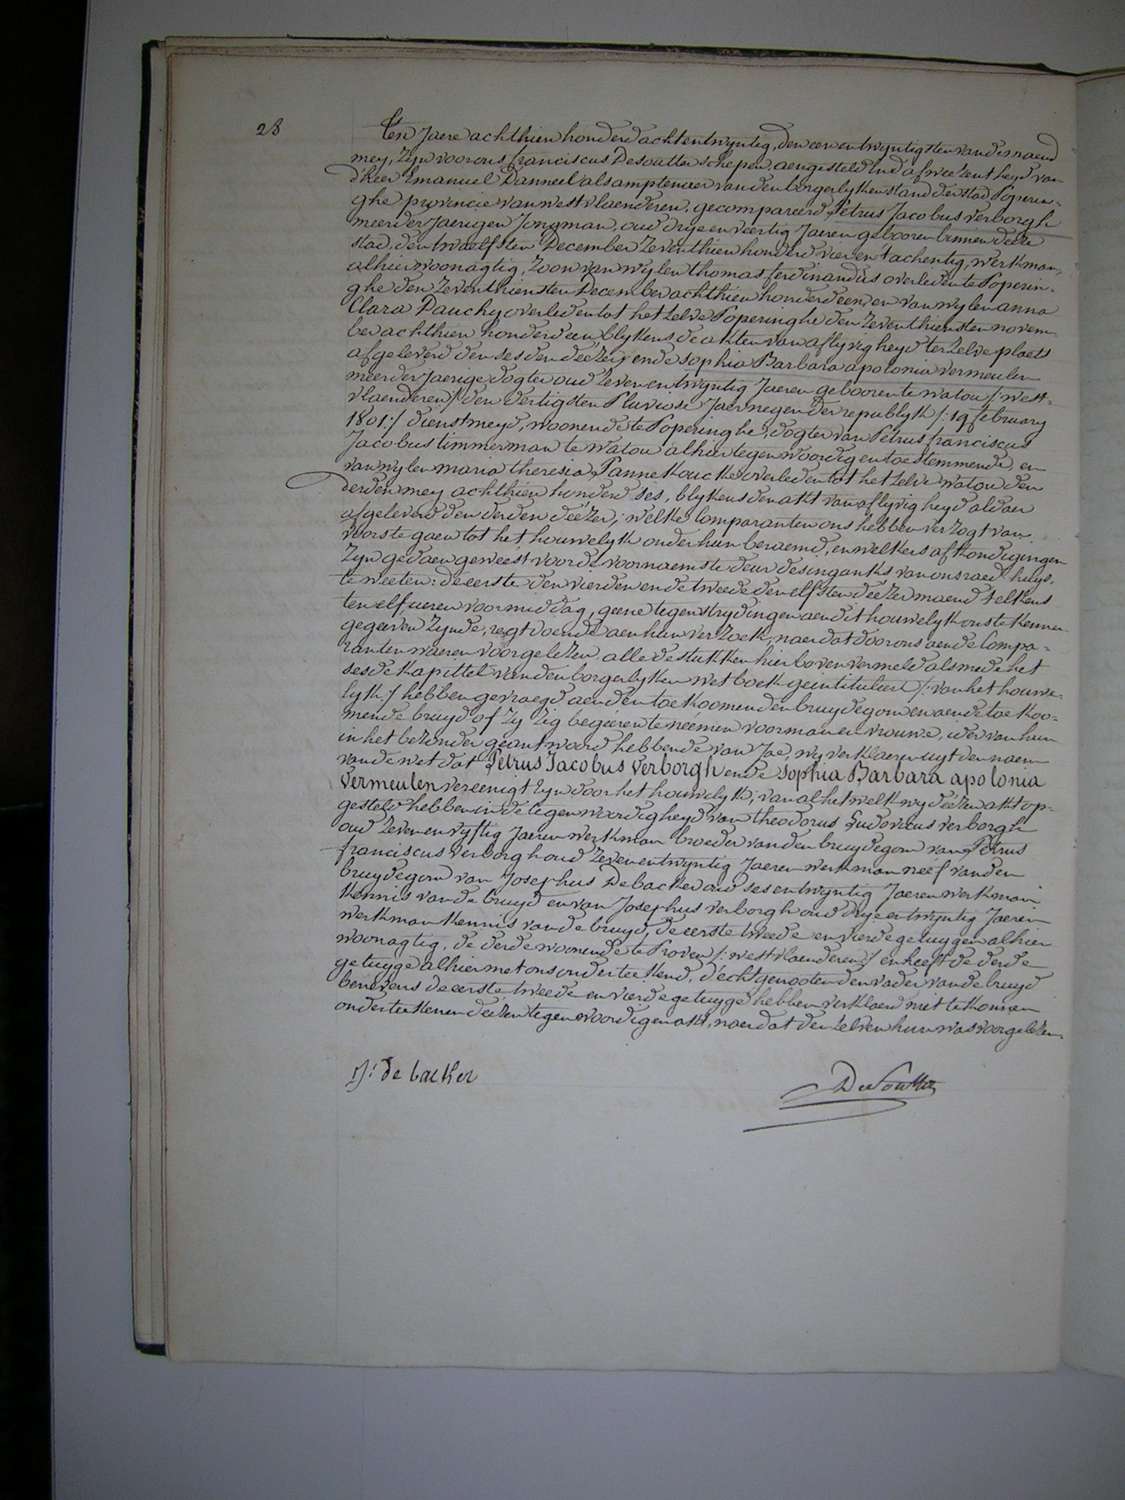 28
Ten Jaere achthien honderd achtentwyntig, den een en twyntigsten van de maend
mey, zyn voor ons franciscus Desoutter schepen, aengesteld in d'afweezentheyd van
d'heer Emanuel Danneel als amptenaer van den borgerlyken stand der stad Poperin-
ghe provincie van westvlaenderen, gecompareerd Petrus Jacobus verborgh
meerderjaerigen Jongman, oud drye en veertig Jaeren gebooren binnen deeze
stad, den twaelfsten December zeventhien honderd vier en tachentig, werkman,
alhier woonagtig, zoon van wylen thomas ferdinandus overleden te Poperin-
ghe den zeventhiensten December achthien honderd een, en van wylen anna
Clara Dauchy overleden tot het zelve Poperinghe den zeventhiensten novem-
ber achthien honderd een, blykens de akten van aflyvigheyd ter zelve plaets
afgeleverd den sesden deézer, en de sophia Barbara apolonia vermeulen
meerderjaerige dogter oud zeven en twyntig Jaeren gebooren te watou /: west-
vlaenderen:/ den dertigsten Pluviose Jaer negen der republyk /: 19 february
1801:/ dienstmeyd, woonende te Poperinghe, dogter van Petrus franciscus
Jacobus timmerman te watou alhier tegenwoordig en toestemmende, en
van wylen maria theresia Pannekoucke overleden tot het zelve watou den
derden mey achthien honderd ses, blykens den akt van aflyvigheyd aldaer
afgeleverd den derden deézer; welke Comparanten ons hebben verzogt van
voorts te gaen tot het houwelyk onder hun beraemd, en welkers afkondigingen
zyn gedaen geweést voor de voornaemste deur des inganks van ons raed-huys,
te weeten: de eerste den vierden en de tweede den elfsten deézer maend telkens
ten elf ueren voormiddag, geene tegenstrydingen aen dit houwelyk ons te kennen
gegeéven zynde, regt doende aen hun verzoek, naerdat door ons aen de Compa-
ranten waeren voorgelezen alle de stukken hierboven vermeld alsmede het
sesde kapittel van den borgerlyken wetboek geintituleert /: van het houwe-
lyk:/ hebben gevraegd aen den toekoomenden bruydegom en aen de toekoo-
mende bruyd of zy zig begeéren te neémen voor man en vrouwe, ider van hun
in het bezonder geantwoord hebbende van Jae, wy verklaeren uyt den naem
van de wet dat Petrus Jacobus verborgh en de sophia Barbara apolonia
vermeulen vereenigt zyn door het houwelyk; van al het welk wy deézen akt op-
gesteld hebben in de tegenwoordigheyd van theodorus Ludovicus verborgh
oud zeven en vyftig Jaeren werkman broeder van den bruydegom van Petrus
franciscus verborgh oud zeven en twyntig Jaeren werkman neéf van den
bruydegom van Josephus Debacker oud ses en twyntig Jaeren werkman
kennis van de bruyd en van Josephus verborgh oud drye en twyntig Jaeren
werkman kennis van de bruyd, de eerste tweede en vierde getuygen alhier
woonagtig, de derde woonende te Proven /: westvlaenderen:/ en heéft de derde
getuyge alhier met ons onderteekend, d'echtgenooten den vader van de bruyd
benevens de eerste tweede en vierde getuyge hebben verklaerd niet te konnen
onderteekenen deézen tegenwoordigen akt, naerdat den zelven hun was voorgelézen.
J: de backer
Desoutter